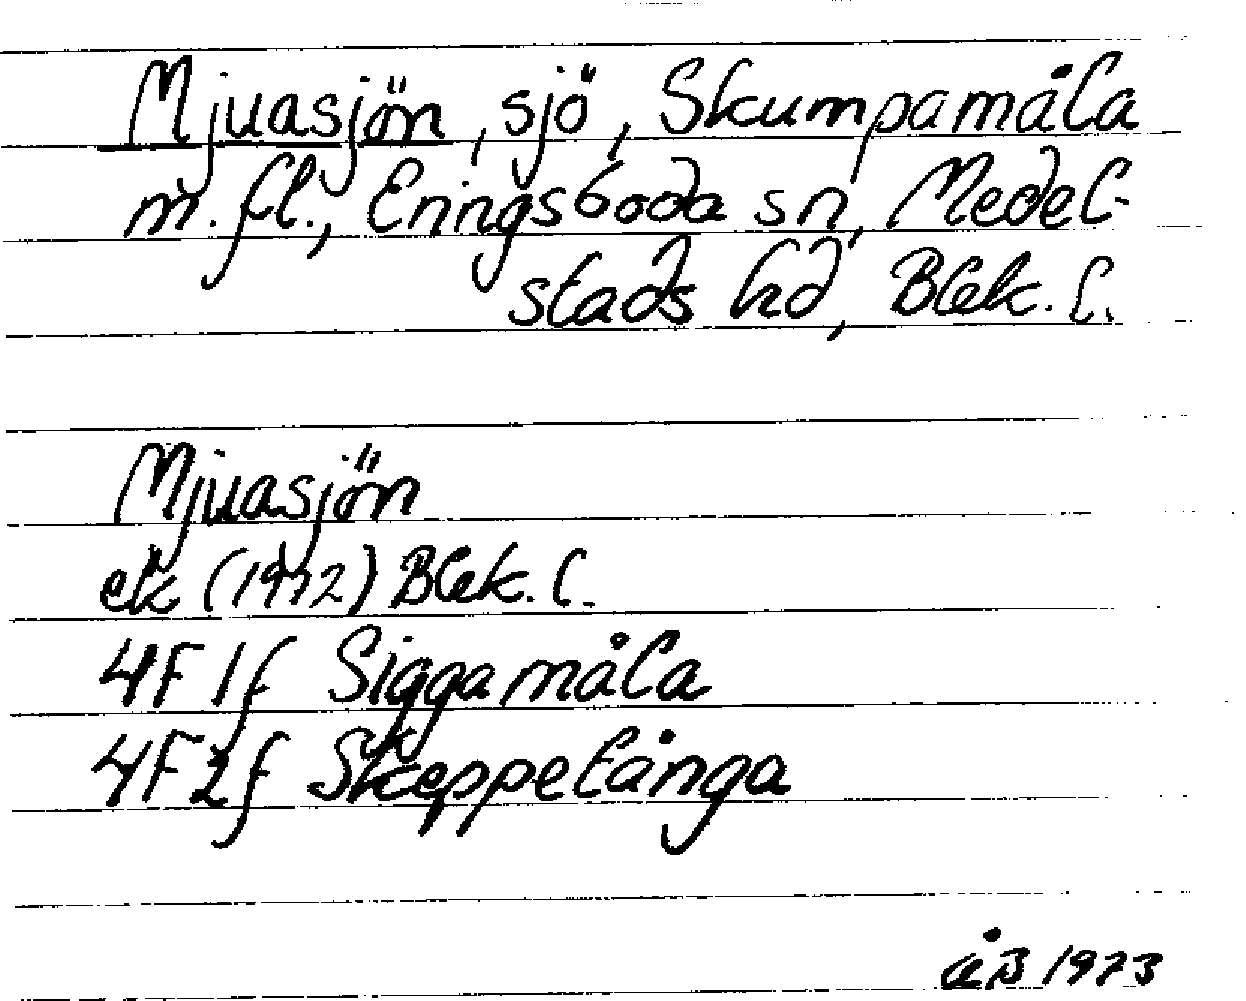 Mjuasjön, sjö, Skumpamåla
m. fl., Eringsboda sn, Medel-
stads hd, Blek. l.
Mjuasjön
ek (1972) Blek. l.
4F 1f Siggamåla
4F 2f Skeppelånga
ÅB 1973